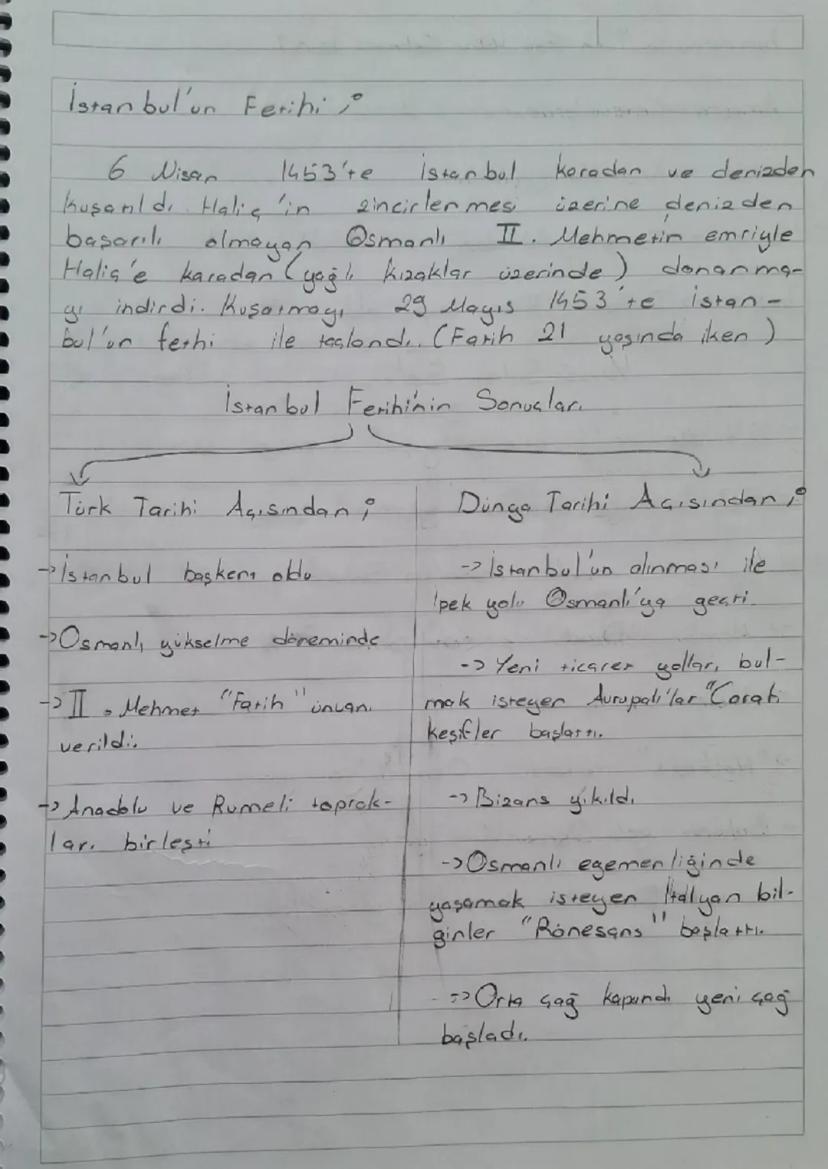 İstanbul'un Fetihi ;
6 Nisan 1453'te İstanbul karadan ve denizden
kuşatıldı. Haliç'in zincirlenmesi üzerine denizden
başarılı olmayan Osmanlı II. Mehmetin emriyle
Haliç'e karadan (yağlı kızaklar üzerinde) donanma-
yı indirdi. Kuşatmayı 29 Mayıs 1453'te istan-
bul'un fethi ile taçlandı. (Fatih 21 yaşında iken)
İstanbul Fetihi'nin Sonuçları
Türk Tarihi Açısından ;
→İstanbul başkent oldu
→Osmanlı yükselme döneminde
→II. Mehmet "Fatih" ünvanı
verildi.
→Anadolu ve Rumeli toprak-
ları birleşti
Dünya Tarihi Açısından ;
→İstanbul'un alınması ile
ipek yolu Osmanlı'ya geçti.
→Yeni ticaret yolları bul-
mak isteyen Avrupalı'lar "Corafi
keşifler başlattı.
→Bizans yıkıldı
→Osmanlı egemenliğinde
yaşamak isteyen İtalyan bil-
ginler "Rönesans" başlattı.
→Orta çağ kapandı yeni çağ
başladı.